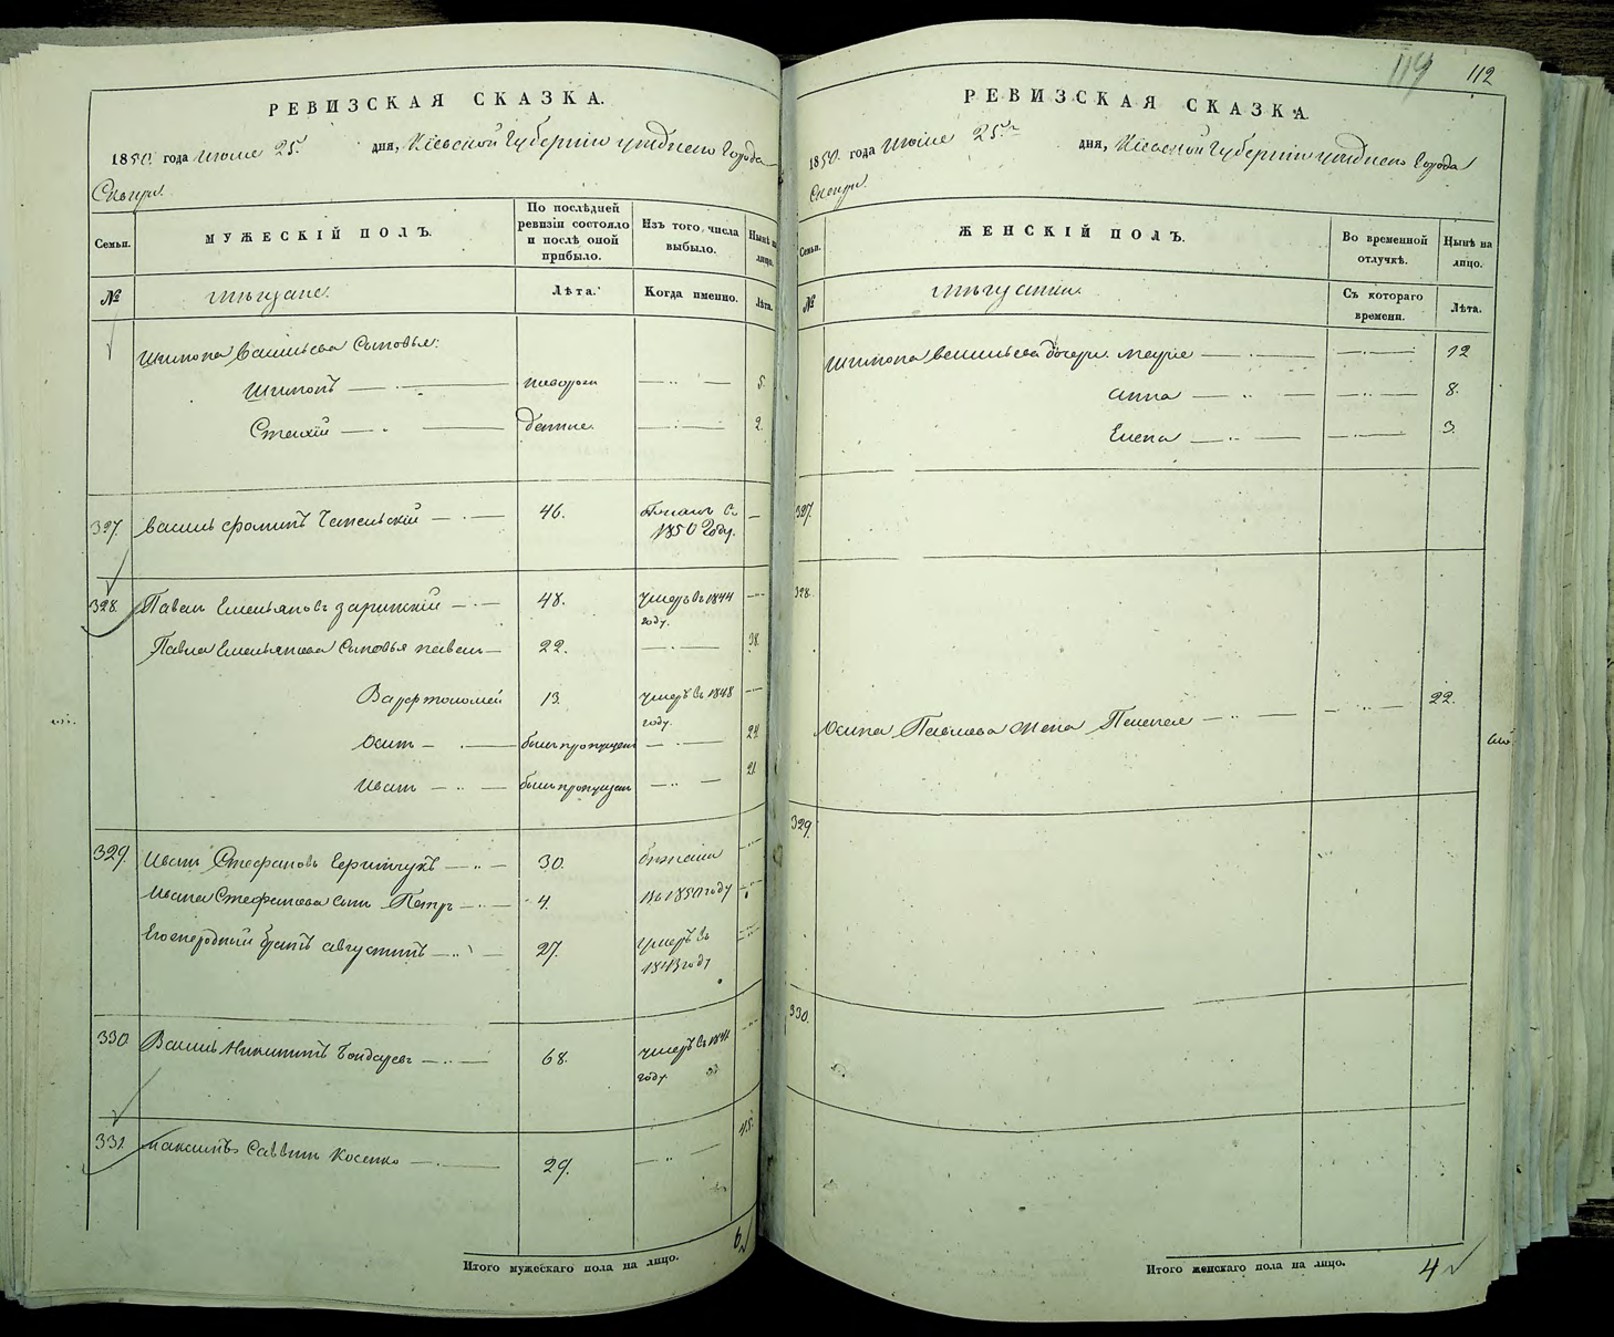 РЕВИЗСКАЯ СКАЗКА.
1850 года Июня 25. дня, Кіевской Губерніи уѣзднаго Города
Сквиры.
Семьи.
МУЖЕСКІЙ ПОЛЪ.
По послѣдней ревизіи состояло и послѣ оной прибыло.
Изъ того числа выбыло.
Нынѣ на лицо.
№
мѣщане.
Лѣта.
Когда именно.
Лѣта.
Сыновья:
новорож 5.
денные. 2.
327. Василь Фоминъ 46. 1850 Году. —
328. Павелъ Емельяновъ Зарицкій 48. умеръ въ 1844 году.
Павла Емельянова Сыновья Павелъ 22. 38.
Варфоломей 13. умеръ въ 1848 году.
Осипъ былъ пропущенъ 24.
Иванъ былъ пропущенъ 21.
329. Иванъ Стефановъ 30. бѣжали
Ивана Стефанова сынъ Петръ 4. въ 1850 году
Его братъ Августинъ 27. умеръ въ 1843 году
330. Василь Никитинъ Бондарев 68. умеръ въ году
331. Максимъ Саввинъ Косенко 29. 45.
Итого мужескаго пола на лицо. 6
119 112
РЕВИЗСКАЯ СКАЗКА
1850 года Июня 25 дня, Кіевской Губерніи уѣзднаго Города
Сквиры.
Семьи.
ЖЕНСКІЙ ПОЛЪ.
Во временной отлучкѣ.
Нынѣ на лицо.
№
мѣщанки.
Съ котораго времени.
Лѣта.
дочери 12
Анна 8.
Елена 3.
327.
328.
Осипа Павлова жена Пелагея 22.
329.
330.
Итого женскаго пола на лицо. 4